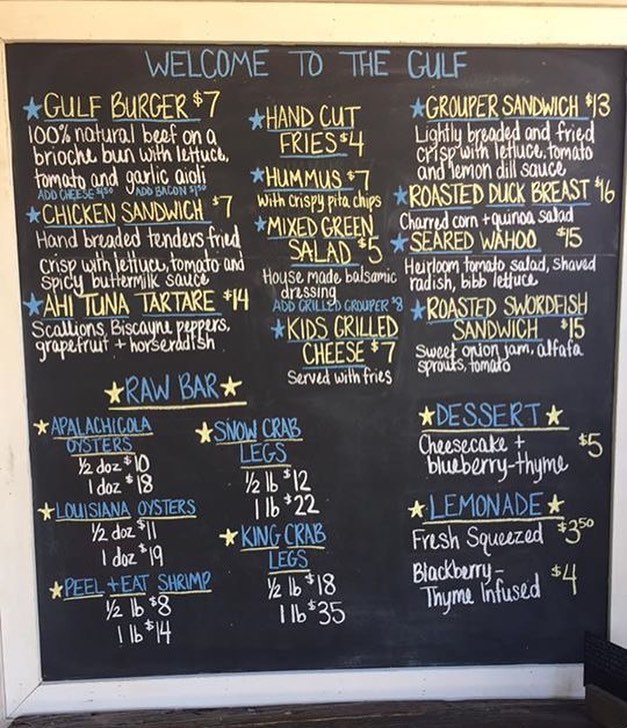 WELCOME TO THE GULF
GULF BURGER $7
100% natural beef on a
brioche bun with lettuce,
tomato and garlic aioli
ADD CHEESE $1.50 ADD BACON $1.50
CHICKEN SANDWICH $7
Hand breaded tenders fried
crisp with lettuce, tomato and
spicy buttermilk sauce
AHI TUNA TARTARE $14
Scallions, Biscayne peppers,
grapefruit + horseradish
HAND CUT
FRIES $4
HUMMUS $7
with crispy pita chips
MIXED GREEN
SALAD $5
House made balsamic
dressing
ADD GRILLED GROUPER $8
KIDS GRILLED
CHEESE $7
Served with fries
GROUPER SANDWICH $13
Lightly breaded and fried
crisp with lettuce, tomato
and lemon dill sauce
ROASTED DUCK BREAST $16
Charred corn + quinoa salad
SEARED WAHOO $15
Heirloom tomato salad, shaved
radish, bibb lettuce
ROASTED SWORDFISH
SANDWICH $15
Sweet onion jam, alfafa
sprouts, tomato
RAW BAR
APALACHICOLA
OYSTERS
1/2 doz $10
1 doz $18
LOUISIANA OYSTERS
1/2 doz $11
1 doz $19
PEEL + EAT SHRIMP
1/2 lb $8
1 lb $14
SNOW CRAB
LEGS
1/2 lb $12
1 lb $22
KING CRAB
LEGS
1/2 lb $18
1 lb $35
DESSERT
Cheesecake + $5
blueberry-thyme
LEMONADE
Fresh Squeezed $3.50
Blackberry- $4
Thyme Infused